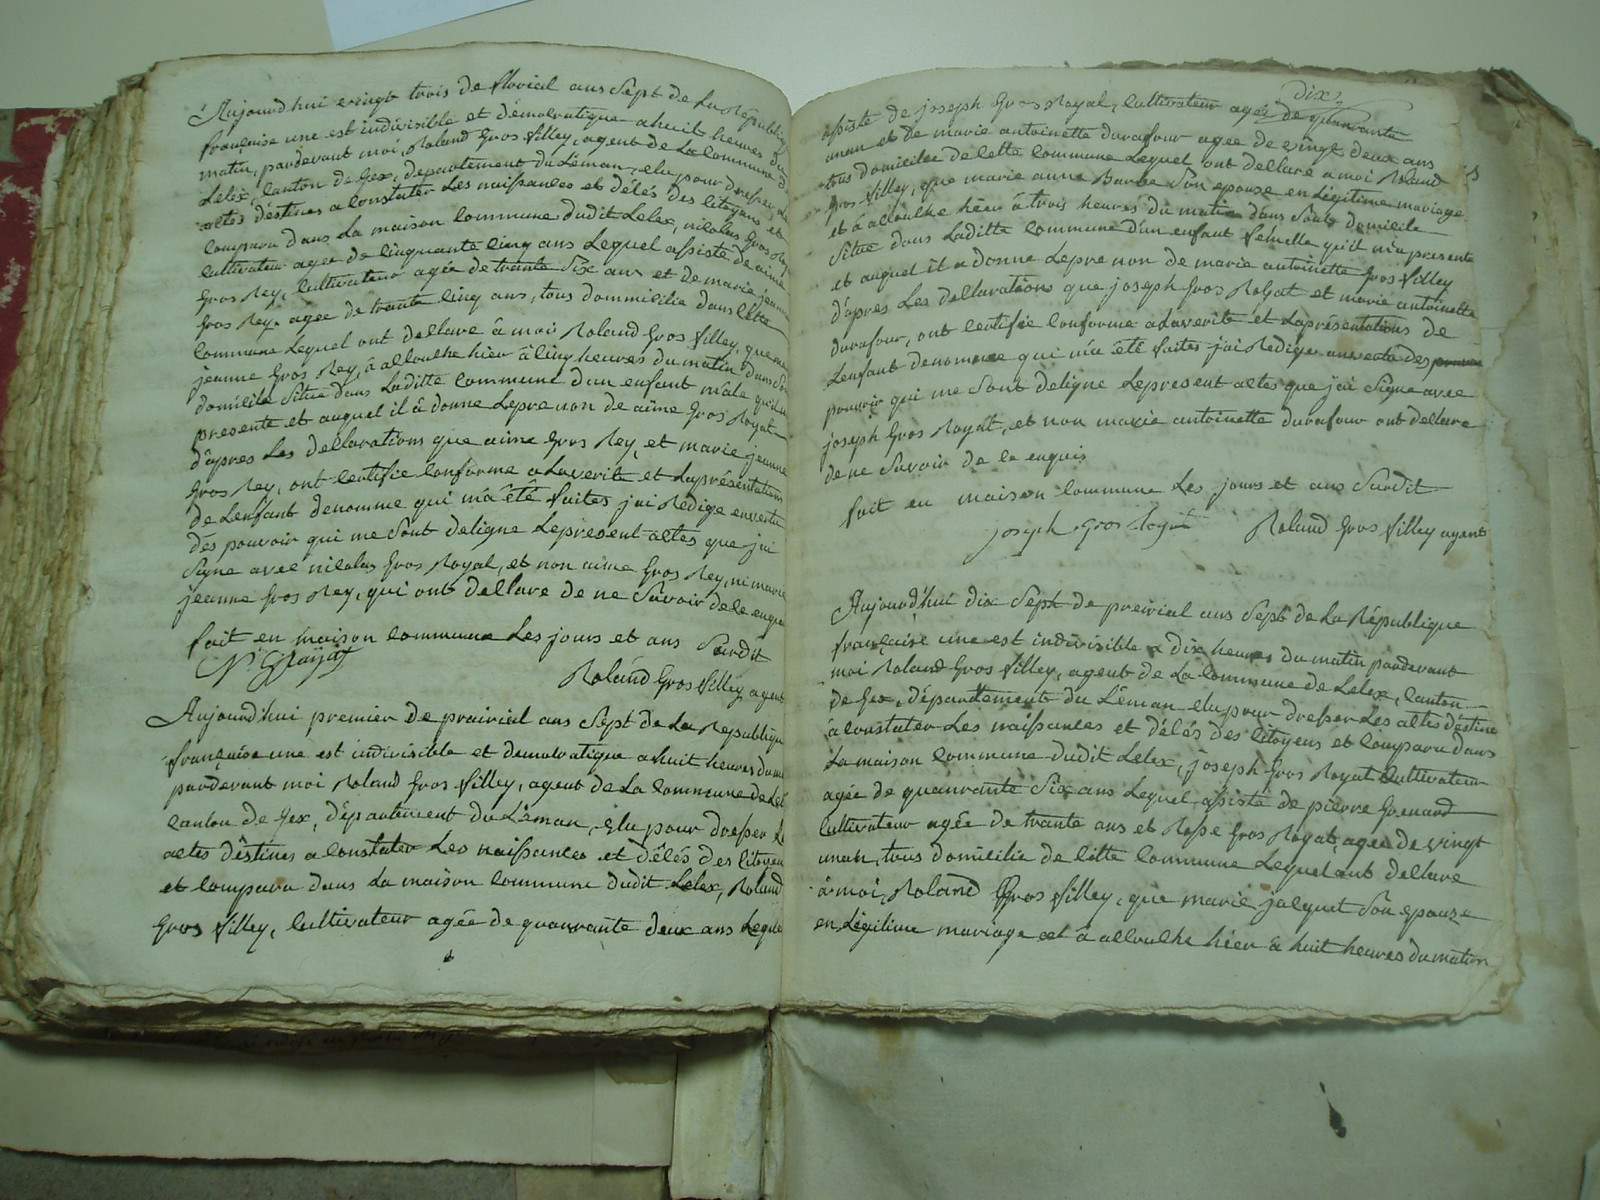 Aujourdhui vingt trois de floreal ans Sept de La Républiq
françaïse une est indivisible et démocratique a huit heures du
matin, pardevant moi, Roland Gros filley, agent de La commune d
Lelex, Canton de Gex, departement du Léman, elu pour dresser Le
actes déstines a constater Les naissances et décés des citoyens et
comparu dans La maison commune dudit Lelex, nicolas Gros Roy
cultivateur agée de cinquante cinq ans Lequel assiste de aimé
Gros Rey, cultivateur agée de trante Six ans et de marie jeanne
Gros Rey, agée de trante cinq ans, tous dommicilie dans cette
commune Lequel ont declare à moi Roland Gros filley, que
jeanne Gros Rey, à accouche hier à cinq heures du matin dans Son
domicile Situe dans Laditte commune dun enfant mâle quil
presente et auquel il à donne Lepre non de aime Gros Royat
d'apres Les declarations que aime Gros Rey, et marie jeanne
Gros Rey, ont certifie conforme a Laverite et Laprésentation
de Lenfant denomme qui m'a été faites j'ai Redige envertu
des pouvoir qui me Sont deligne Lepresent actes que jai
Signe avec nicolas Gros Royat, et non aime Gros Rey, ni marie
jeanne Gros Rey, qui ont declare de ne Savoir de ce enquis
fait en maison commune Les jours et ans Surdit
Roland Gros filley agent
Aujourd'hui premier de prairial ans Sept de La Republique
françaïse une est indivisible et democratique a huit heures du ma
pardevant moi Roland Gros filley, agent de La commune de Lel
canton de Gex, département du Léman, elu pour dresser Le
actes déstines a constater Les naissances et décés des citoyen
et comparu dans La maison commune dudit Lelex, Roland
Gros filley, cultivateur agée de quanrante deux ans Leque
dix
assiste de joseph Gros Royat, cultivateur agée de quanrante
unan et de marie antoinette durafour agee de vingt deux ans
tous domicilee de cette commune Lequel ont declare a moi Roland
Gros filley, que marie anne Barbe Son epouse en Légitime mariage
et à accouche hier à trois heures du matin dans Sont domicile
Situe dans Laditte commune dun enfant fémelle qu'il m'a presente
et auquel il a donne Lepre non de marie antoinette Gros filley
d'apres Les declarations que joseph Gros Royat et marie antoinette
durafour, ont certifie conforme a Laverite et Laprésentations de
Lenfant denomme qui m'a été faites j'ai Redige envertu des
pouvoir qui me Sont deligne Lepresent actes que j'ai Signe avec
joseph Gros Royat, et non marie antoinette durafour ont declare
de ne Savoir de ce enquis
fait en maison commune Les jours et ans Surdit
joseph Gros Royat Roland Gros filley agent
Aujourd'hui dix Sept de preirial ans Sept de La République
française une est indivisible a dix heures du matin pardevant
moi Roland Gros filley, agent de La commune de Lelex, canton
de Gex, département du Léman elu pour dresser Les actes déstine
à constater Les naissances et décés des citoyens et comparu dans
La maison commune dudit Lelex, joseph Gros Royat cultivateur
agée de quanrante Six ans Lequel assiste de pierre Grenard
cultivateur agée de trante ans et Rose Gros Royat, agee de vingt
unan, tous domicilie de cette commune Lequel ont declare
à moi, Roland Gros filley, que marie jacquet Son epouze
en Légitime mariage et à accouche hier à huit heures du matin